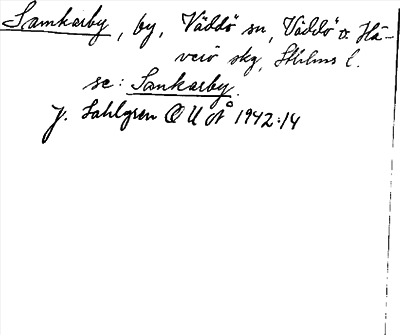 Samkarby, by, Väddö sn, Väddö o. Hä-
verö skg, Sthlms l.
se: Sankarby.
J. Sahlgren O U Å 1942:14